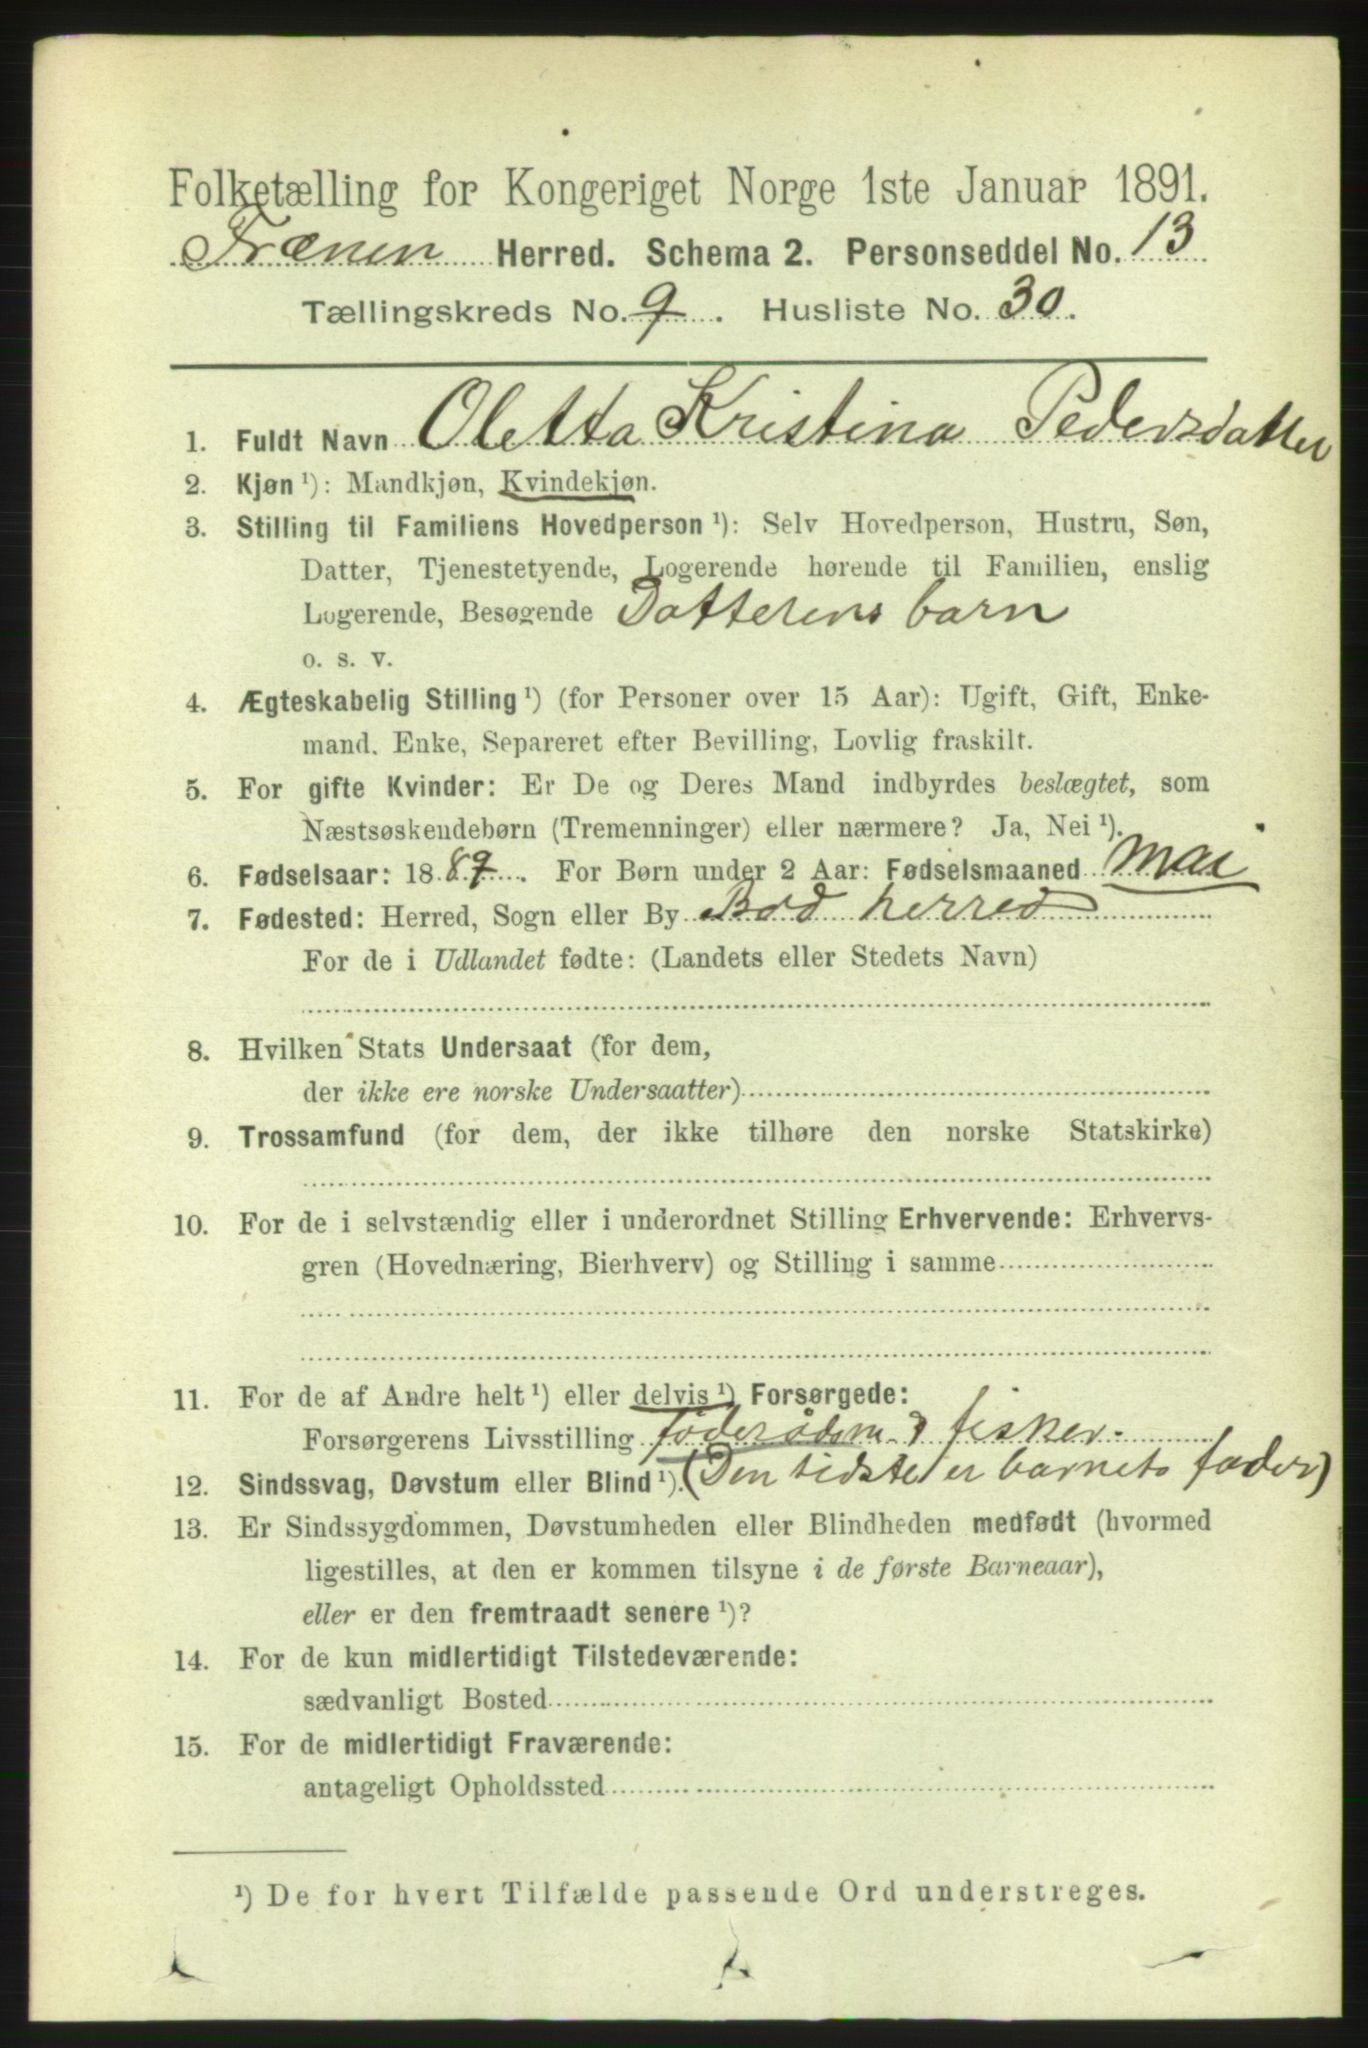 Folketælling for Kongeriget Norge 1ste Januar 1891.
Frænen Herred. Schema 2. Personseddel No. 13
Tællingskreds No. 9. Husliste No. 30.
1. Fuldt Navn Oletta Kristina Pedersdatter
2. Kjøn ¹): Mandkjøn, Kvindekjøn.
3. Stilling til Familiens Hovedperson ¹): Selv Hovedperson, Hustru, Søn,
Datter, Tjenestetyende, Logerende hørende til Familien, enslig
Logerende, Besøgende Datterens barn
o. s. v.
4. Ægteskabelig Stilling ¹) (for Personer over 15 Aar): Ugift, Gift, Enke-
mand, Enke, Separeret efter Bevilling, Lovlig fraskilt.
5. For gifte Kvinder: Er De og Deres Mand indbyrdes beslægtet, som
Næstsøskendebørn (Tremenninger) eller nærmere? Ja, Nei ¹).
6. Fødselsaar: 1889. For Børn under 2 Aar: Fødselsmaaned Mai
7. Fødested: Herred, Sogn eller By Bod herred
For de i Udlandet fødte: (Landets eller Stedets Navn)
8. Hvilken Stats Undersaat (for dem,
der ikke ere norske Undersaatter)
9. Trossamfund (for dem, der ikke tilhøre den norske Statskirke)
10. For de i selvstændig eller i underordnet Stilling Erhvervende: Erhvervs-
gren (Hovednæring, Bierhverv) og Stilling i samme
11. For de af Andre helt ¹) eller delvis ¹) Forsørgede:
Forsørgerens Livsstilling föderådsm. & fisker.
12. Sindssvag, Døvstum eller Blind ¹). (Den sidste er barnets fader)
13. Er Sindssygdommen, Døvstumheden eller Blindheden medfødt (hvormed
ligestilles, at den er kommen tilsyne i de første Barneaar),
eller er den fremtraadt senere ¹)?
14. For de kun midlertidigt Tilstedeværende:
sædvanligt Bosted
15. For de midlertidigt Fraværende:
antageligt Opholdssted
¹) De for hvert Tilfælde passende Ord understreges.